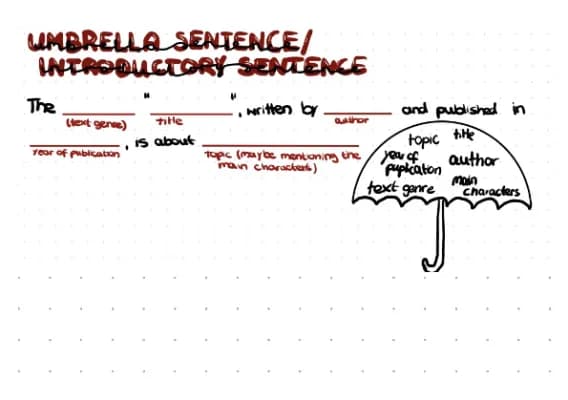 UMBRELLA SENTENCE/
INTRODUCTORY SENTENCE
The ________ " ________ ", written by ________ and published in
(text genre) title author
________, is about ________
Year of publication Topic (maybe mentioning the
main characters)
topic title
year of author
puplication main
text genre characters